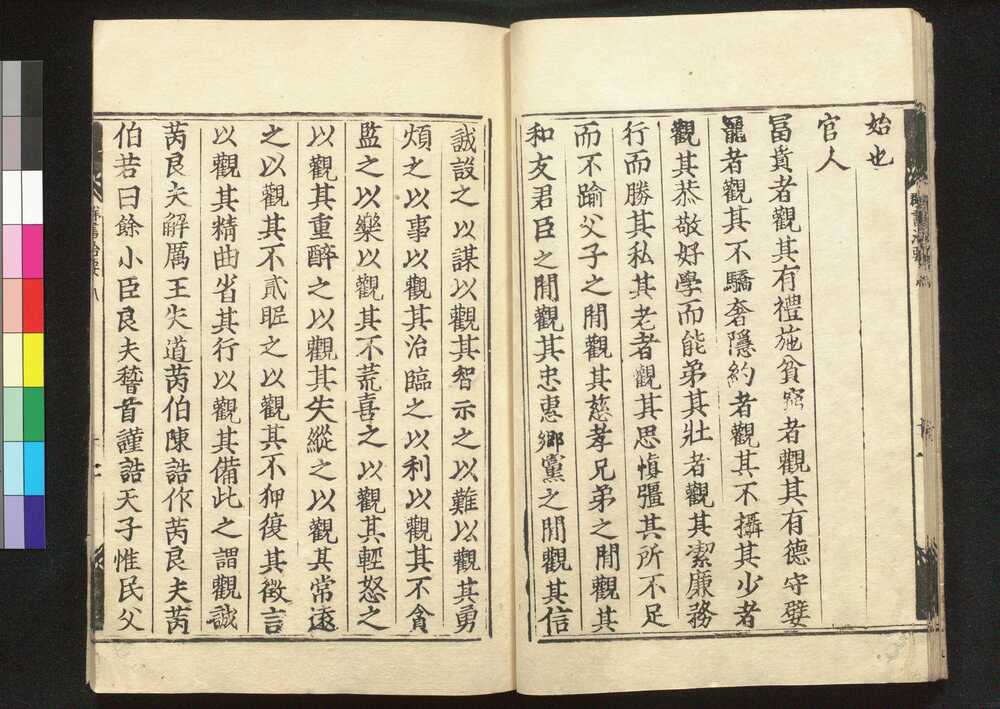 始也
官人
冨貴者觀其有禮施貧窮者觀其有德守嬖
寵者觀其不驕奢隱約者觀其不攝其少者
觀其恭敬好學而能弟其壯者觀其潔廉務
行而勝其私其老者觀其思慎彊其所不足
而不踰父子之閒觀其慈孝兄弟之閒觀其
和友君臣之閒觀其忠惠鄉黨之閒觀其信
誠設之以謀以觀其智示之以難以觀其勇
煩之以事以觀其治臨之以利以觀其不貪
監之以樂以觀其不荒喜之以觀其輕怒之
以觀其重醉之以觀其失縱之以觀其常遠
之以觀其不貳昵之以觀其不狎復其徵言
以觀其精曲省其行以觀其備此之謂觀誠
芮良夫解厲王失道芮伯陳誥作芮良夫芮
伯若曰餘小臣良夫稽首謹誥天子惟民父
群書治要 八